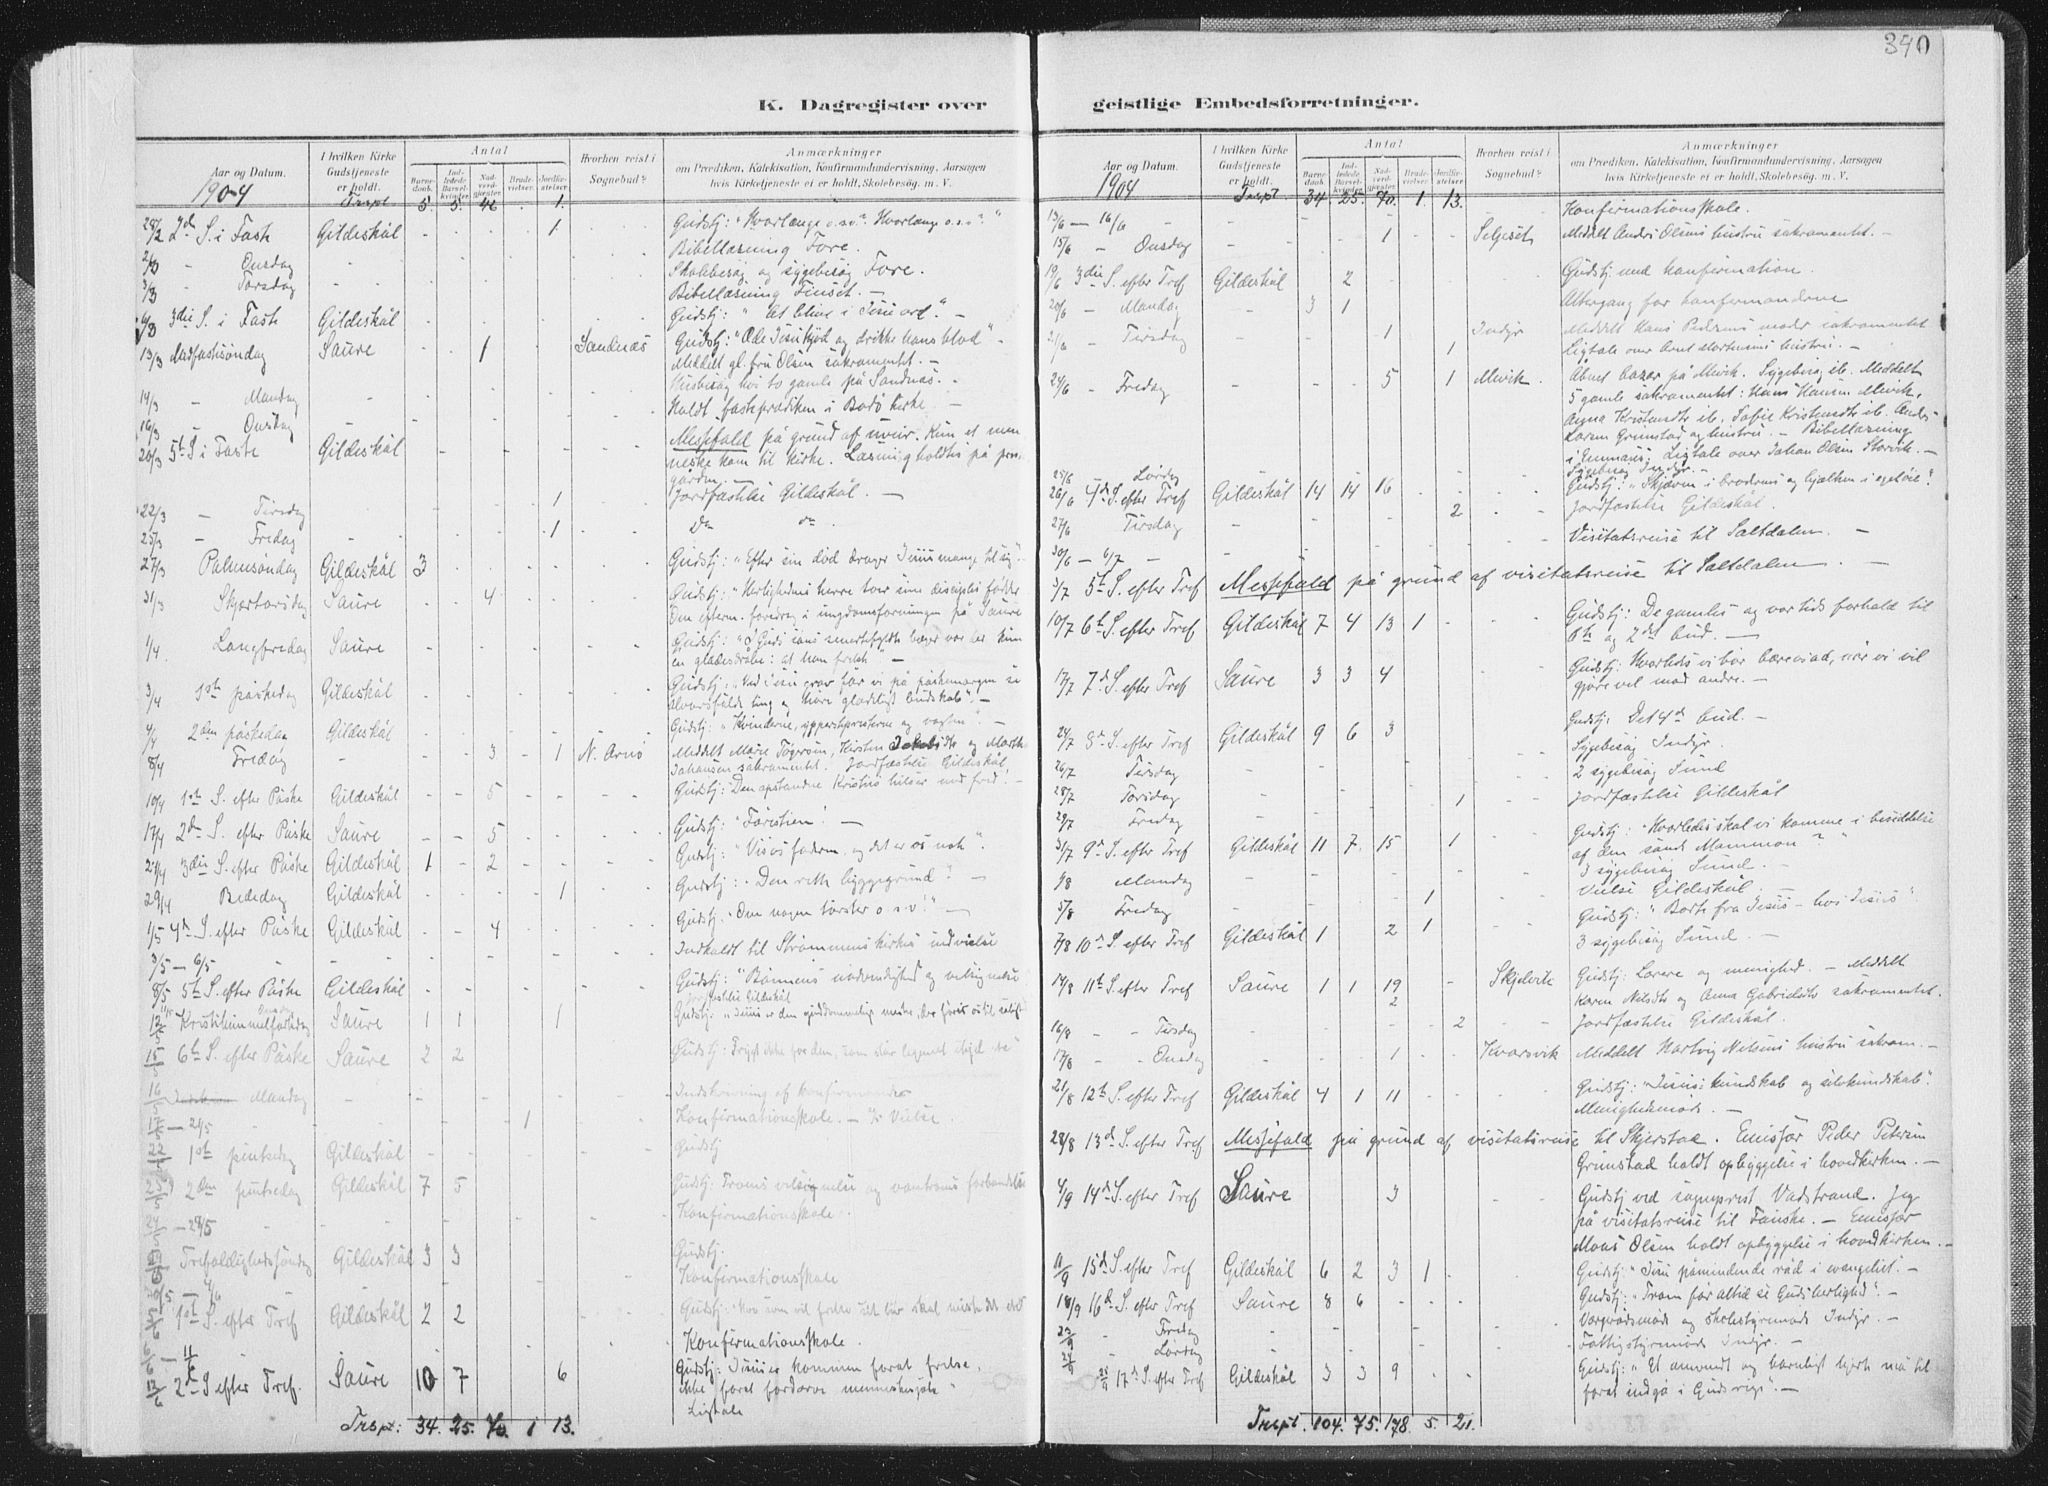 390
K. Dagregister over
Aar og Datum.
I hvilken Kirke Gudstjeneste er holdt.
Antal
Barnedaab.
Indledede Barselkvinder.
Nadverdgjester.
Brudevielser.
Jordfæstelser
Hvorhen reist i Sognebud?
Anmærkninger
om Prædiken, Katekisation, Konfirmandundervisning, Aarsagen
hvis Kirketjeneste ei er holdt, Skolebesøg, m. V.
1904 Trspt. 5. 5. 46 . 1.
28/2 2den S. i Faste Gildeskål 1 Gudstj: "Hvorlænge o.s.v. Hvorlænge o.s.v."
2/3 - Onsdag Bibellæsning Fore.
3/3 - Torsdag Skolebesøg og sygebesøg Fore.
Bibellæsning Finset. -
6/3 3die S. i Faste Gildeskål Gudstj: "At blive i Jesu ord". -
13/3 Midfastesøndag Saure 1 Sandnæs Gudstj: "Æde Jesu kjød og drikke hans blod" -
Meddelt gl. fru Olsen sakramentet. -
14/3 - Mandag Husbesøg hos to gamle på Sandnæs. -
16/3 - Onsdag Holdt fasteprædiken i Bodø kirke -
20/3 5te S i Faste Gildeskål Messefald på grund af uveir. Kun et men
neske kom til kirke. Læsning holdtes på præste
gården. -
22/3 - Tirsdag 1 Jordfæstelse Gildeskål. -
25/3 - Fredag 1 Do do.
27/3 Palmesøndag Gildeskål 3 Gudstj: "Efter sin død drager Jesus mange til sig".
31/3 Skjærtorsdag Saure 4 Gudstj: "Herlighedens herre toer sine disciples fødder
Om efterm. foredrag i ungdomsforeningen på Saure
1/4 Langfredag Saure Gudstj: "I Guds søns smertefyldte bæger var der kun
en glædesdråbe: at kom frelst" -
3/4 1ste påskedag Gildeskål Gudstj: "Ved Jesu grav får vi på påskemorgen se
alvorsfulde ting og høre glædeligt budskab". -
4/4 2den påskedag Gildeskål Gudstj: "Kvinderne, ypperstepresterne og vagten". -
8/4 Fredag 3 - 1 N. Arnø Meddelt Marie Tøgersen, Kirsten Jakobsdtr og Marthe
Johansen sakramentet. Jordfæstelse Gildeskål.
10/4 1ste S. efter Påske Gildeskål 5 Gudstj: "Den opstandne Kristus hilser med fred! -
17/4 2den S. efter Påske Saure 5 Gudstj: "Faristien! -
24/4 3die S. efter Påske Gildeskål 1 - 2 Gudstj: "Vis os faderen og det er os nok".
29/4 Bededag Gildeskål 1 Gudstj: "Den rette byggegrund". -
1/5 4de S. efter Påske Gildeskål 4 Gudstj. "Om nogen tørster o.s.v." -
3/5 - 6/5 Indkaldt til Strømmens kirkes indvielse
8/5 5te S. efter Påske Gildeskål Gudstj: "Bønnens nødvendighed og velsignelse
Jordfæstelse Gildeskål
12/5 Kristihimmelfartsdag Saure 1 1 1 Gudstj: "Jesus er den guddommelige mester, der fører os til salighed
15/5 6te S. efter Påske Saure 2 2 Gudstj: Frygt ikke for dem, som slår legemet ihjel o.s.v."
16/5 Mandag Indskrivning af konfirmander
17/5 - 21/5 1 Konfirmationsskole. - Vielse.
22/5 1ste pintsedag Gildeskål Gudstj
23/5 2den pintsedag Gildeskål 7 5 Gudstj: Troens velsignelse og vantroens forbandelse
24/5 - 28/5 Konfirmationsskole.
Trefoldighedssøndag Gildeskål 3 3 Gudstj.
Konfirmationsskole
1ste S. efter Tref Gildeskål 2 2 Gudstj: "Hvo som vil frelse sit liv skal miste det etc
6/6 - 11/6 Konfirmationsskole.
12/6 2den S efter Tref. Saure 10 7 6 Gudstj: Jesus er kommen forat frelse,
ikke forat fordærve menneskesjæle"
Ligtale
Trspt: 34. 25. 70. 1 13.
geistlige Embedsforretninger.
Aar og Datum.
I hvilken Kirke Gudstjeneste er holdt.
Antal
Barnedaab.
Indledede Barselkvinder.
Nadverdgjester.
Brudevielser.
Jordfæstelser
Hvorhen reist i Sognebud?
Anmærkninger
om Prædiken, Katekisation, Konfirmandundervisning, Aarsagen
hvis Kirketjeneste ei er holdt, Skolebesøg, m. V.
1904 Trspt 34 25. 70. 1. 13.
13/6 - 16/6 Konfirmationsskole.
15/6 - Onsdag 1 Selseset Meddelt Andrs Olsens hustru sakramentet. -
19/6 3die S. efter Tref Gildeskål 2 Gudstj med konfirmation.
20/6 - Mandag 3 1 Altergang for konfirmanderne
21/6 - Tirsdag 1 Indyr Meddelt Hans Pedersens moder sakramentet
1 Ligtale over Arnt Mortensens hustru. -
24/6 - Fredag 5 1 Mevik Åbnet bazar på Mevik. Sygebesøg ib. Meddelt
5 gamle sakramentet: Hans Hansen Mevik,
Anna Kristensdtr ib, Sofie Kristensdtr ib. Andrs
Larsen Grimstad og hustru. - Bibellæsning
i Emmaus. Ligtale over Johan Olsen Storvik. -
25/6 Lørdag Sygebesøg Indyr. -
26/6 4de S. efter Tref Gildeskål 14 14 16 Gudstj: "Skjæven i broderens og bjælken i eget øie".
27/6 Tirsdag 2 Jordfæstelse Gildeskål.
30/6 - 6/7 - Visitatsreise til Saltdalen. -
3/7 5te S. efter Tref Messefald på grund af visitatsreise til Saltdalen. -
10/7 6te S. efter Tref Gildeskål 7 4 13 1 Gudstj: De gamles og vor tids forhold til
6te og 2det bud. -
17/7 7de S. efter Tref Saure 3 3 4 Gudstj: Hvorledes vi bør bære os ad, når vi vil
gjøre vel mod andre. -
24/7 8de S. efter Tref Gildeskål 9 6 3 Gudstj: Det 4de bud. -
26/7 Tirsdag Sygebesøg Indyr.
28/7 Torsdag 2 sygebesøg Sund
29/7 Fredag 1 Jordfæstelse Gildeskål
31/7 9de S. efter Tref Gildeskål 11 7. 15 1 Gudstj: "Hvorledes skal vi komme i besiddelse
af den sande Mammon"?
1/8 Mandag 3 sygebesøg Sund. -
5/8 Fredag 1 Vielse Gildeskål.
7/8 10de S. efter Tref Gildeskål 1 2 1 Gudstj: "Borte fra Jesus - hos Jesus".
3 sygebesøg Sund. -
14/8 11te S. efter Tref Saure 1 1 19 2 Skjelvik Gudstj: Lærere og menighed. - Meddelt
Karen Nilsdtr og Anna Gabrielsdtr sakramentet.
16/8 - Tirsdag 2 Jordfæstelse Gildeskål.
17/8 - Onsdag 1 Kvarsvik Meddelt Hartvig Nilsens hustru sakram. -
21/8 12te S. efter Tref Gildeskål 4 1 11 Gudstj: "Jesuskundskab og selvkundskab".
Menighedsmøde. -
28/8 13de S. efter Tref Messefald på grund af visitatsreise til Skjerstad. Emissær Peder Petersen
Grimstad holdt opbyggelse i hovedkirken. -
4/9 14de S. efter Tref Saure 3 Gudstj ved sogneprest Vadstrand. Jeg
på visitatsreise til Fauske. - Emissær
Mons Olsen holdt opbyggelse i hovedkirken. -
11/9 15de S. efter Tref Gildeskål 6 2 3 1 Gudstj: "Jesu påmindende råd i evangeliet. -
18/9 16de S. efter Tref Saure 8 6 Gudstj: "Troen får altid se Guds herlighed". -
23/9 Fredag Værgerådsmøde og skolestyremøde Indyr. -
24/9 Lørdag Fattigstyremøde Indyr. -
25/9 17de S. efter Tref Gildeskål 3 3 9 Gudstj: "Et omvendt og barnligt hjerte må til
forat indgå i Guds rige". -
Trspt. 104. 75. 178. 5. 21.